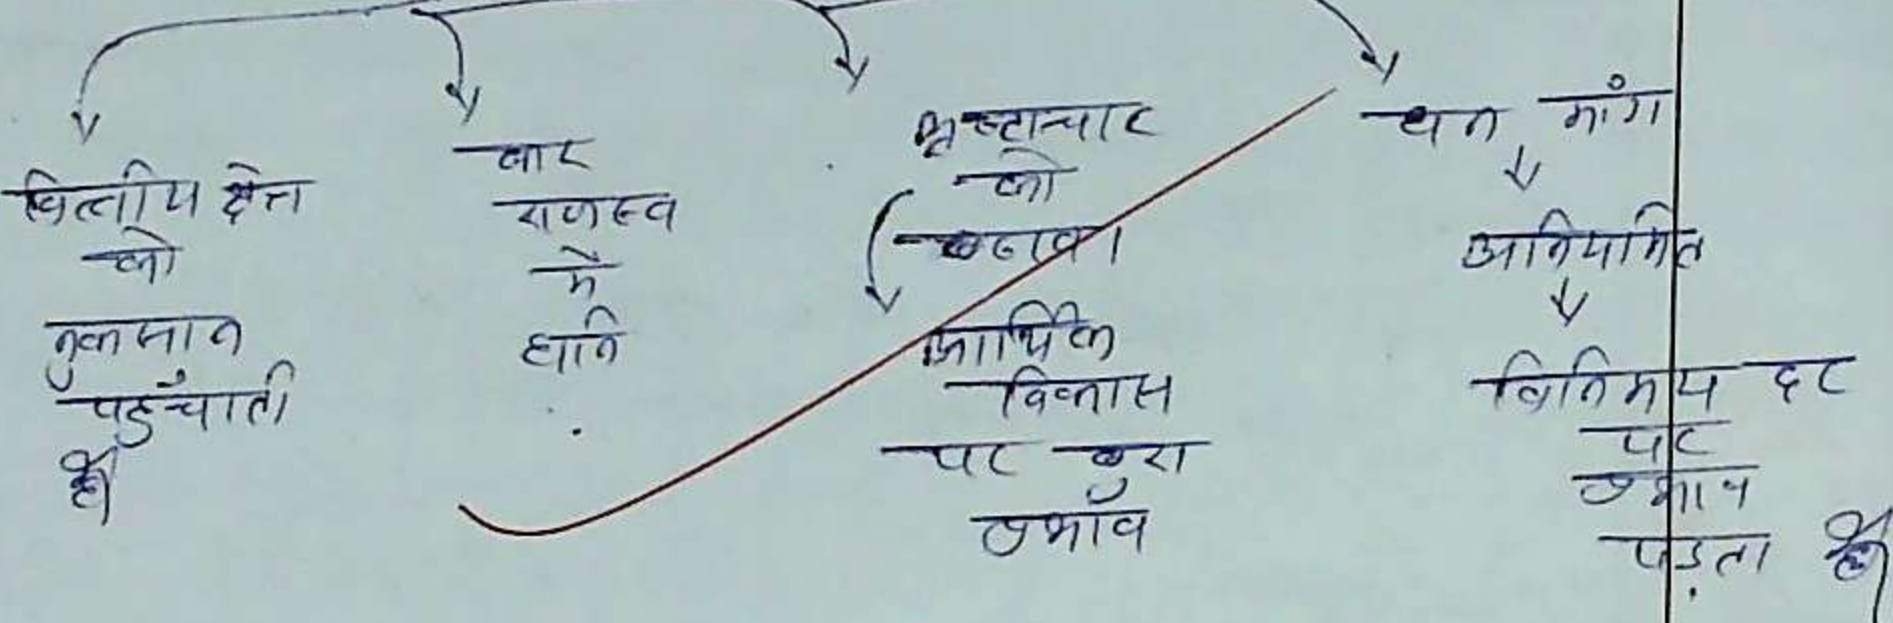 वित्तीय क्षेत्र
को
नुकसान
पहुँचाती
है।
कर
राजस्व
में
हानि
भ्रष्टाचार
को
बढावा
आर्थिक
विकास
पर बुरा
प्रभाव
धन मांग
अनियमित
विनिमय दर
पर
प्रभाव
पड़ता है।